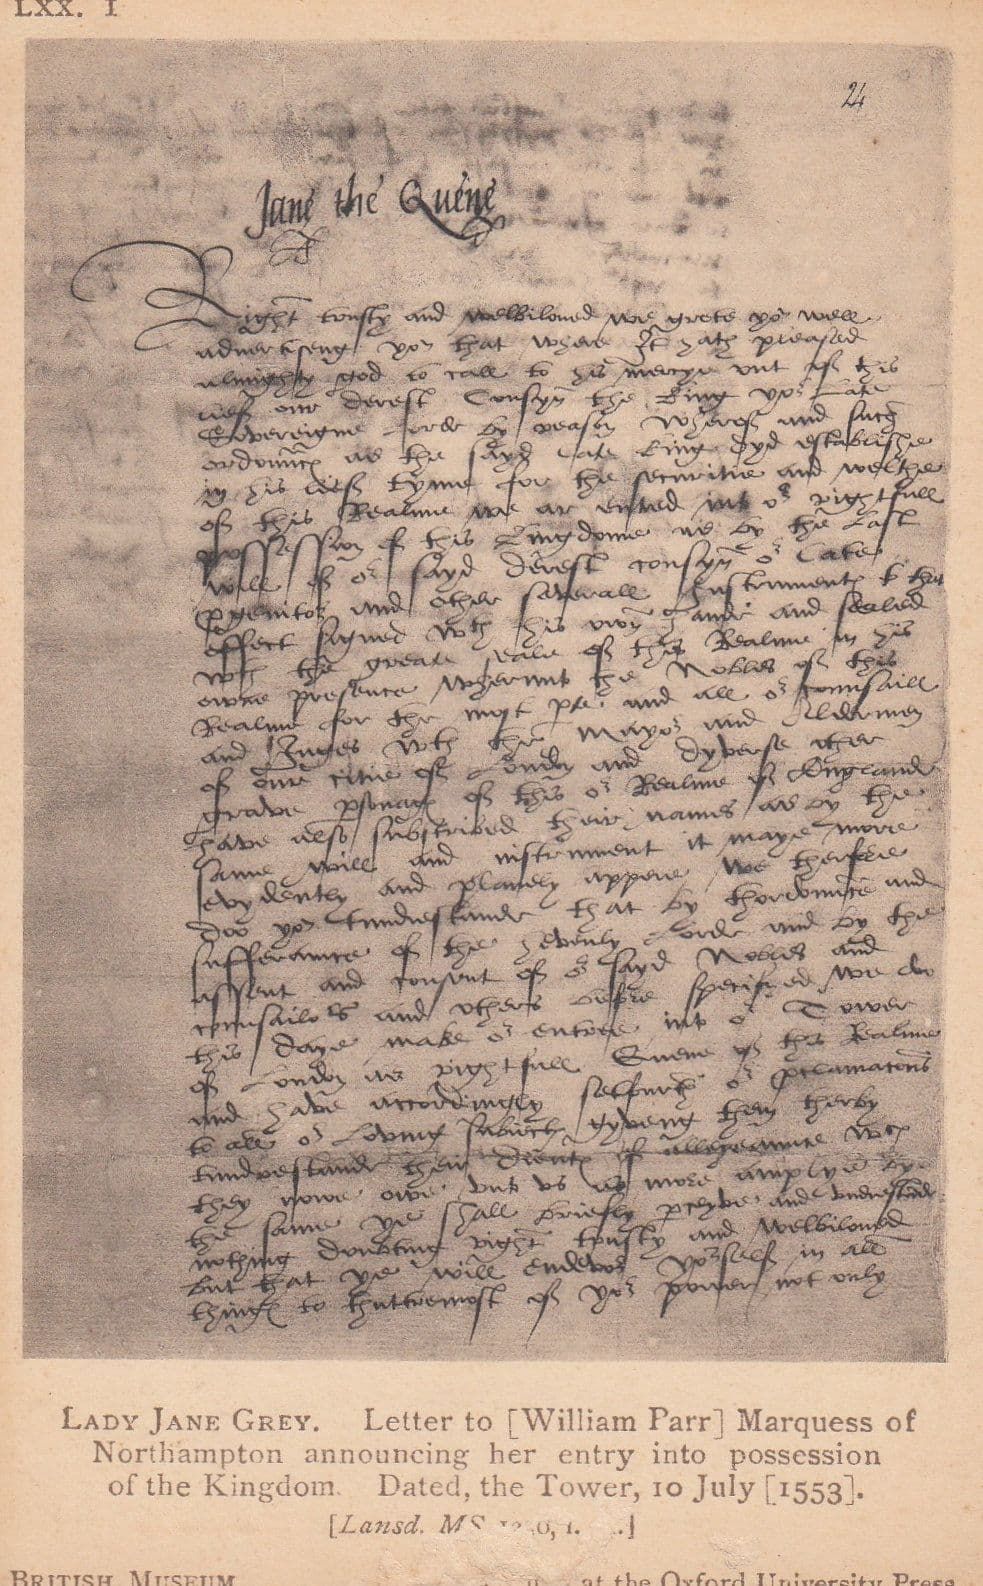 LXX. 1
24
Jane the Quene
Right trusty and welbiloued we grete yor well
aduertiseng yow that where It hath pleased
almighty god to call to his mercye out of this
lief our derest Cousyn the King yor late
Sovereigne Lorde by reason wherof and suche
ordonnce as the sayd late king dyd establishe
in his lief tyme for the securitie and welthe
of this Realme we ar entred into or rightfull
possession of this Kingdome as by the last
will of or sayd derest cousyn or late
progenitor and other severall Instruments to that
effect signed wth his own hande and sealed
wth the greate seale of this Realme in his
owne presence wherunto the Nobles of this
Realme for the most pte and all or counsaill
and Juges wth the Mayor and Aldermen
of our citie of London and dyverse other
grave psonages of this or Realme of Englande
have also subscribed their names as by the
same will and instrument it maye more
evydently and planely appere We therfore
doo yow tunderstande that by thordonnce and
sufferaunce of the hevenly Lorde and by the
assent and consent of or sayd Nobles and
counsailors and others before specifyed We do
this daye make or entree into or Tower
of London as rightfull Quene of this Realme
and have accordingly sett furthe or proclamacons
to all or loving subiects gyveng them therby
tunderstande their duties of allegeaunce wch
they nowe owe unto us as more amplye by
the same ye shall briefly pceyve and understand
nothing doubting right trusty and welbiloued
but that ye will endevor yorself in all
things to thuttermost of yor power not only
LADY JANE GREY. Letter to [William Parr] Marquess of
Northampton announcing her entry into possession
of the Kingdom. Dated, the Tower, 10 July [1553].
[Lansd. MS.
BRITISH MUSEUM
at the Oxford University Press